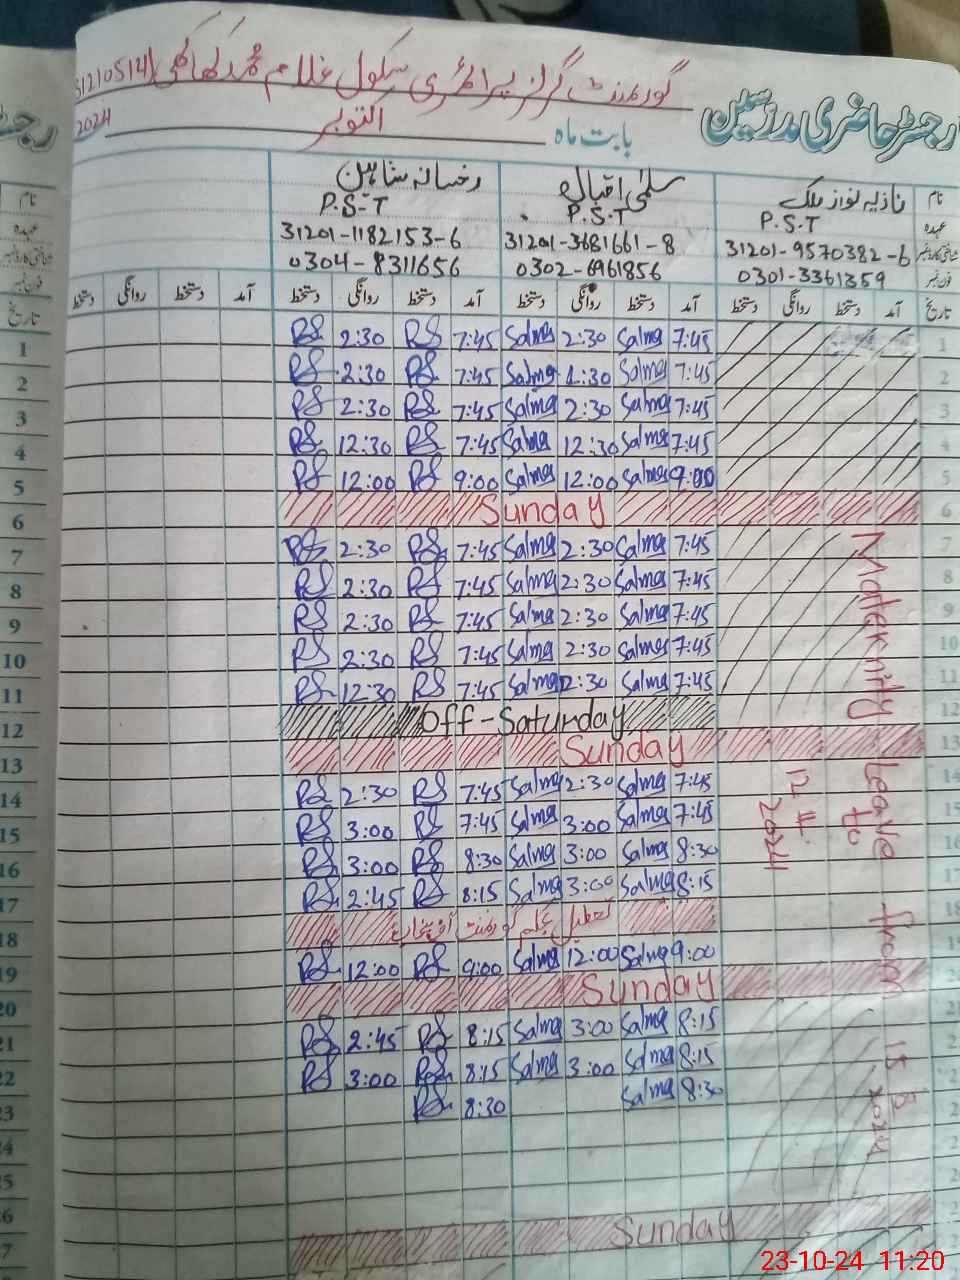 گورنمنٹ گرلز پرائمری سکول غلام محمد (31210514
رجسٹر حاضری مدرسین
بابت ماہ اکتوبر 2024
نام نازیہ نواز ملک سلمیٰ اقبال رخسانہ شاہین
عہدہ P.S.T P.S.T P.S.T
شناختی کارڈ نمبر 31201-9570382-6 31201-3681661-8 31201-1182153-6
فون نمبر 0301-3361359 0302-6961856 0304-8311656
تاریخ آمد دستخط روانگی دستخط آمد دستخط روانگی دستخط آمد دستخط روانگی دستخط آمد دستخط روانگی دستخط
1 7:45 Salma 2:30 Salma 7:45 RS 2:30 RS 1
2 7:45 Salma 1:30 Salma 7:45 RS 2:30 RS 2
3 7:45 Salma 2:30 Salma 7:45 RS 2:30 RS 3
4 7:45 Salma 12:30 Salma 7:45 RS 12:30 RS 4
5 9:00 Salma 12:00 Salma 9:00 RS 12:00 RS 5
6 Sunday 6
7 7:45 Salma 2:30 Salma 7:45 RS 2:30 RS 7
8 7:45 Salma 2:30 Salma 7:45 RS 2:30 RS 8
9 7:45 Salma 2:30 Salma 7:45 RS 2:30 RS 9
10 7:45 Salma 2:30 Salma 7:45 RS 2:30 RS 10
11 7:45 Salma 12:30 Salma 7:45 RS 12:30 RS 11
12 Off-Saturday 12
13 Sunday 13
14 7:45 Salma 2:30 Salma 7:45 RS 2:30 RS 14
15 7:45 Salma 3:00 Salma 7:45 RS 3:00 RS 15
16 8:30 Salma 3:00 Salma 8:30 RS 3:00 RS 16
17 8:15 Salma 3:00 Salma 8:15 RS 2:45 RS 17
18 تعطیل بحکم گورنمنٹ آف پنجاب 18
9:00 Salma 12:00 Salma 9:00 RS 12:00 RS 19
Sunday 20
8:15 Salma 3:00 Salma 8:15 RS 2:45 RS 21
8:15 Salma 3:00 Salma 8:15 RS 3:00 RS 22
8:30 Salma 8:30 RS 23
24
25
26
Sunday 27
Maternity Leave from 15 8 2024
to 12 11 2024
23-10-24 11:20